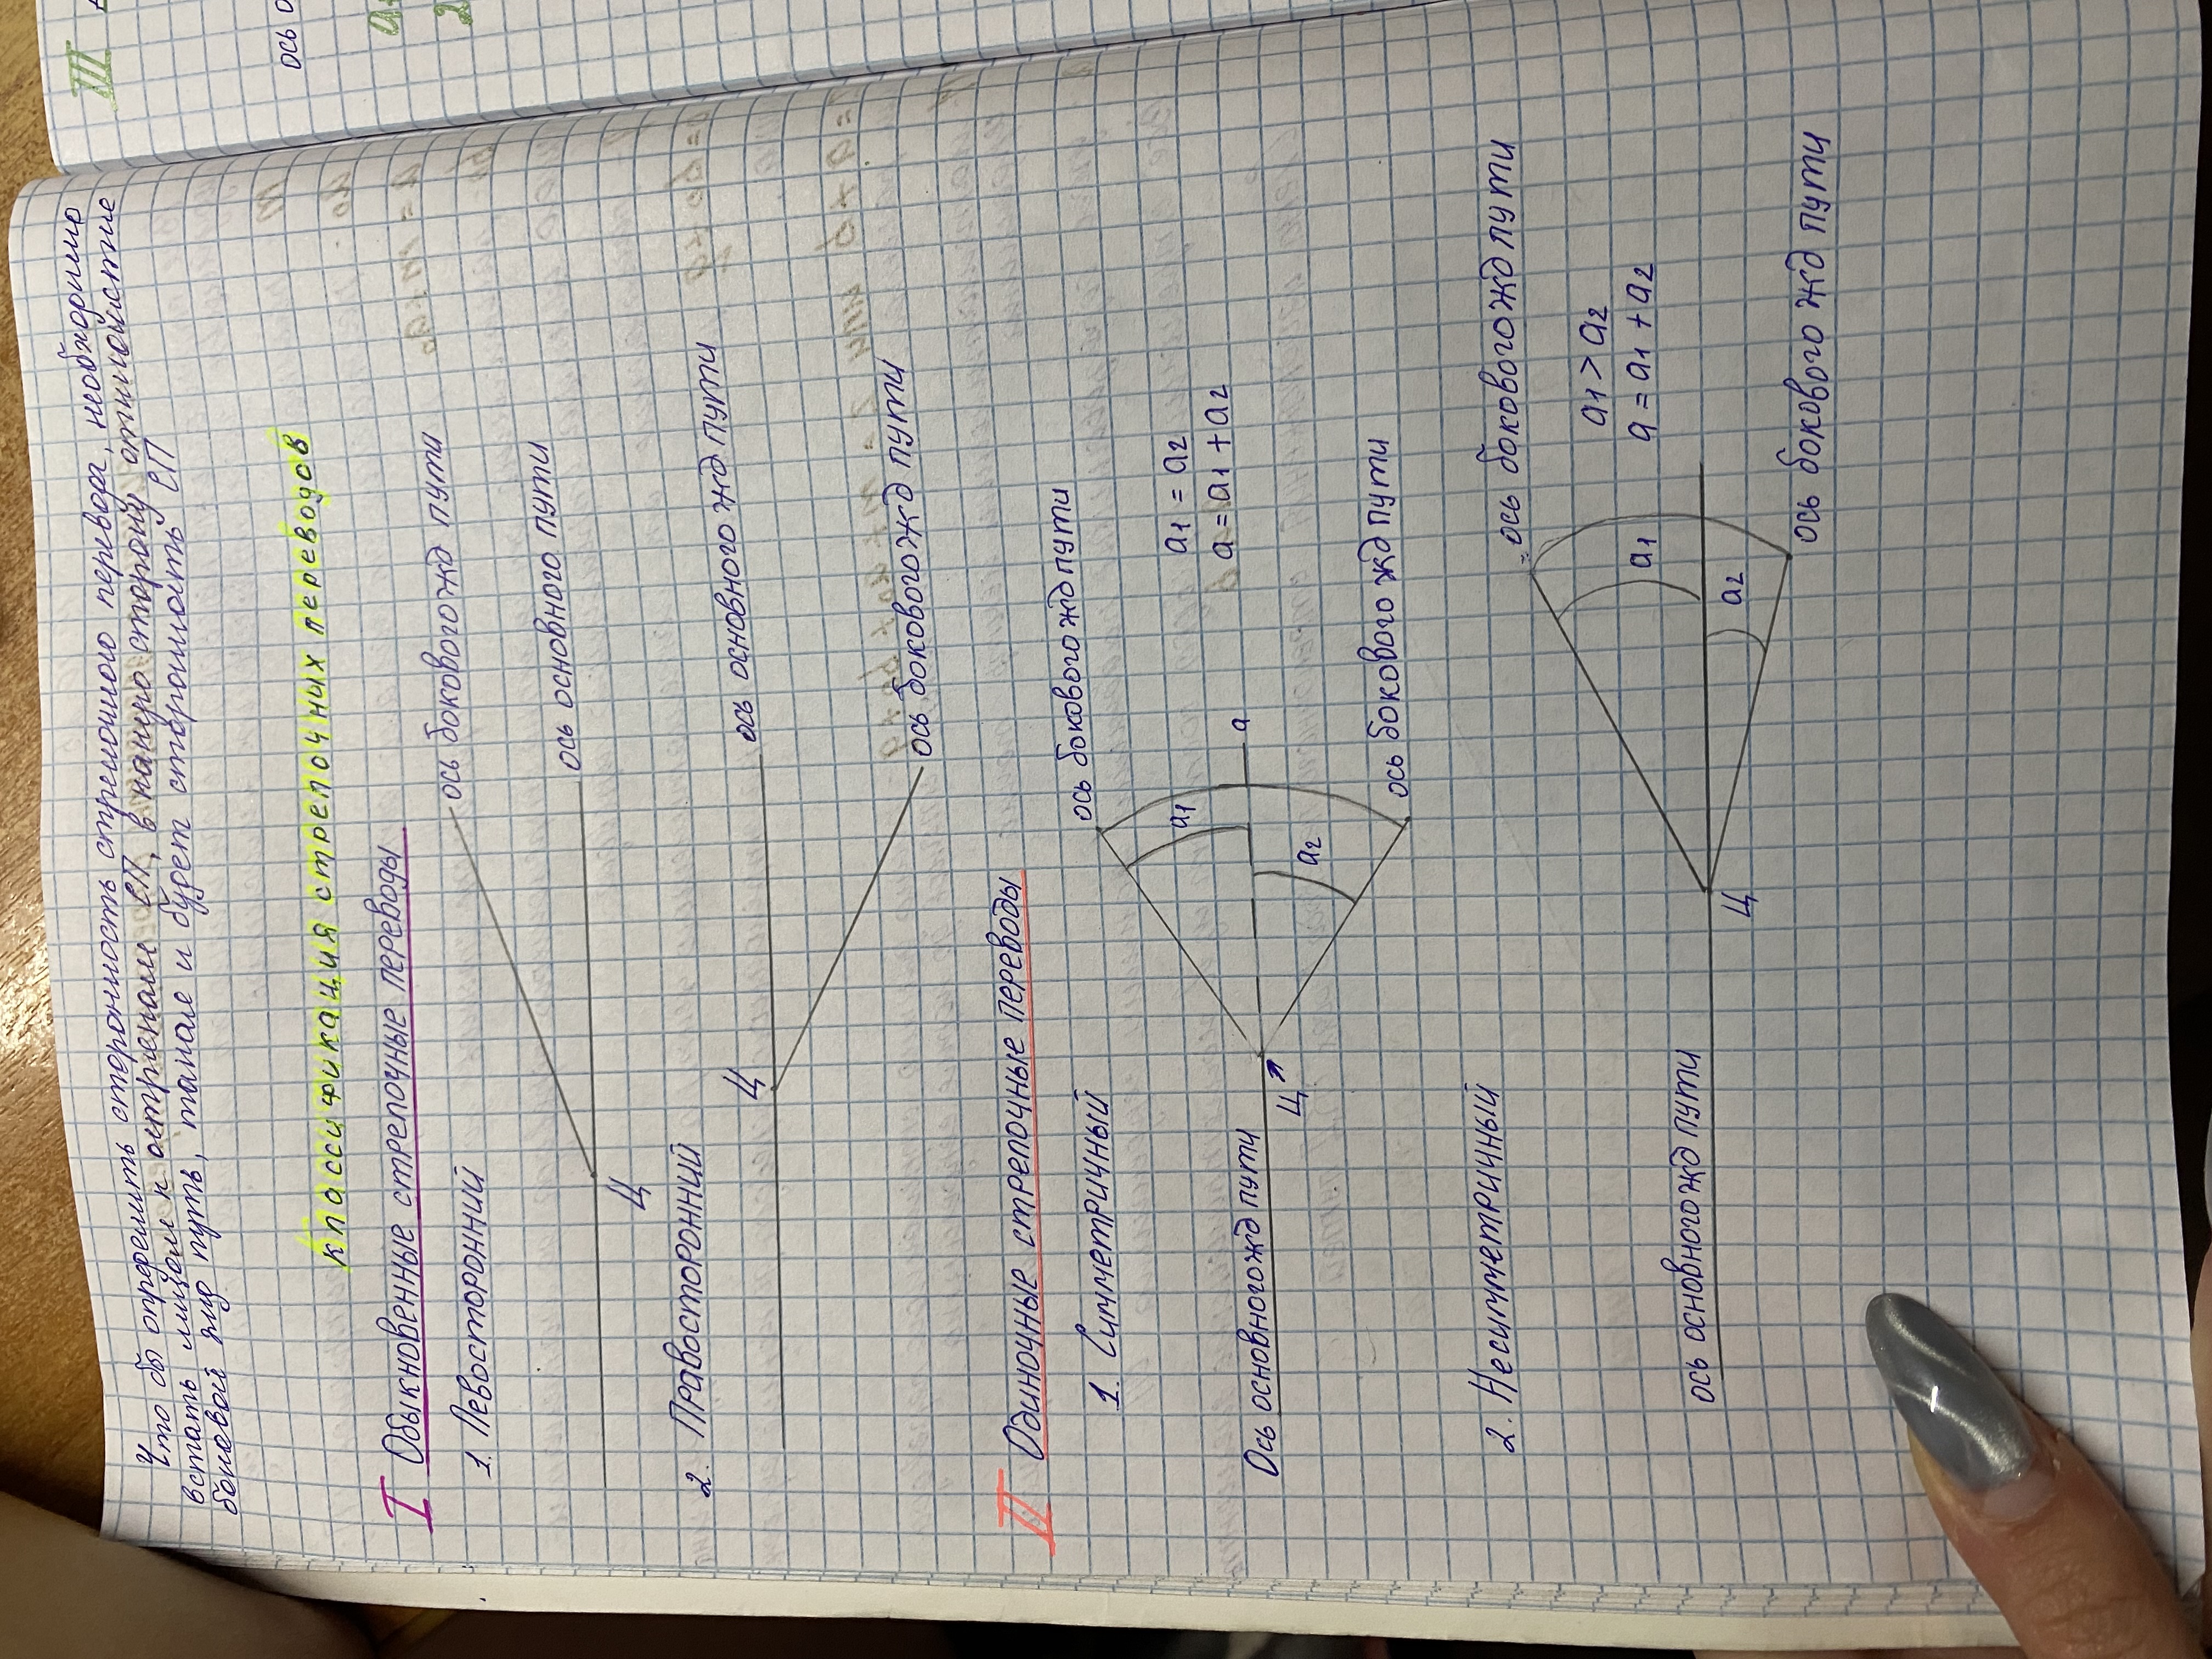 Что бы определить сторонность стрелочного перевода, необходимо
встать лицом к остриякам СП, в какую сторону
боковой жд путь, такое и будет сторонность СП
Классификация стрелочных переводов
I Обыкновенные стрелочные переводы
1. Левосторонний
ось бокового жд пути
ось основного пути
Ц
2. Правосторонний
Ц
ось основного жд пути
ось бокового жд пути
II Одиночные стрелочные переводы
1. Симметричный
ось бокового жд пути
a1
a1 = a2
Ось основного жд пути
Ц
a
a = a1 + a2
a2
ось бокового жд пути
2. Несимметричный
ось бокового жд пути
a1
a1 > a2
a = a1 + a2
ось основного жд пути
Ц
a2
ось бокового жд пути
III
ось о